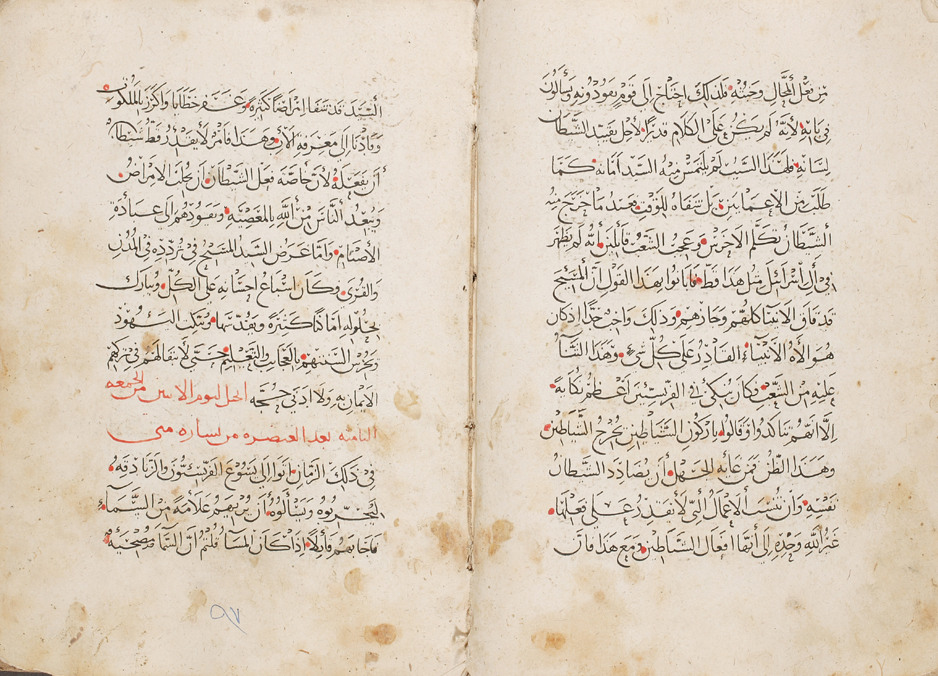 من فعل المحال وخبثه فلذلك احتاج الى قوم يقودونه ويسألون
في بابه لانه لم يكن على الكلام قديرا لاجل تقييد الشيطان
لسانه فلهذا السبب لم يلتمس منه السيد امانه كما
طلب من الاعمايين بل شفاه للوقت فعند ما خرج منه
الشيطان تكلم الاخرس وعجب الشعب قايلين انه لم يظهر
في آل اسرائيل مثل هذا قط فابانوا بهذا القول ان المسيح
قد فاق الانبيا كلهم وحازهم وذلك واجب جدا اذ كان
هو الاه الانبياء القادر على كل شيء وهذا الثنا
عليه من الشعب كان ينكي في الفريسيين اعظم نكايه
الا انهم تناكدوا وقالوا باركون الشياطين يخرج الشياطين
وهذا الظن فمن غاية الجهل ان يضادد الشيطان
نفسه وان تنسب الاعمال التي لا يقدر على فعلها
غير الله وحده الى انها افعال الشياطين ومع هذا فان
السيد قد شفا امراضا كثيره وغفر خطايا واكرز بالملكوت
وقادنا الى معرفة الاب وهذا فامر لا يقدر قط شيطان
ان يفعله لان خاصة فعل الشيطان ان يجلب الامراض
ويبعد الناس من الله بالمعصيه ويقودهم الى عبادة
الاصنام واما غرض السيد المسيح في تردده في المدن
والقرى وكان اسباغ احسانه على الكل ويبارك
بحلوله اماكنا كثيره ويقدسها ويبكت اليهود
ويخرس السنتهم بالعجايب والتعليم حتى لا يبقا لهم في تركهم
الايمان به ولا ادنى حجه انجيل اليوم الاثنين من الجمعه
الثامنه بعد العنصره من بشاره متى
في ذلك الزمان اتوا الى يسوع الفريسيون والزنادقه
ليجربوه ويسألوه ان يريهم علامة من السماء
فاجابهم قايلا اذا كان المسا قلتم ان السما مصحيه
٩٧